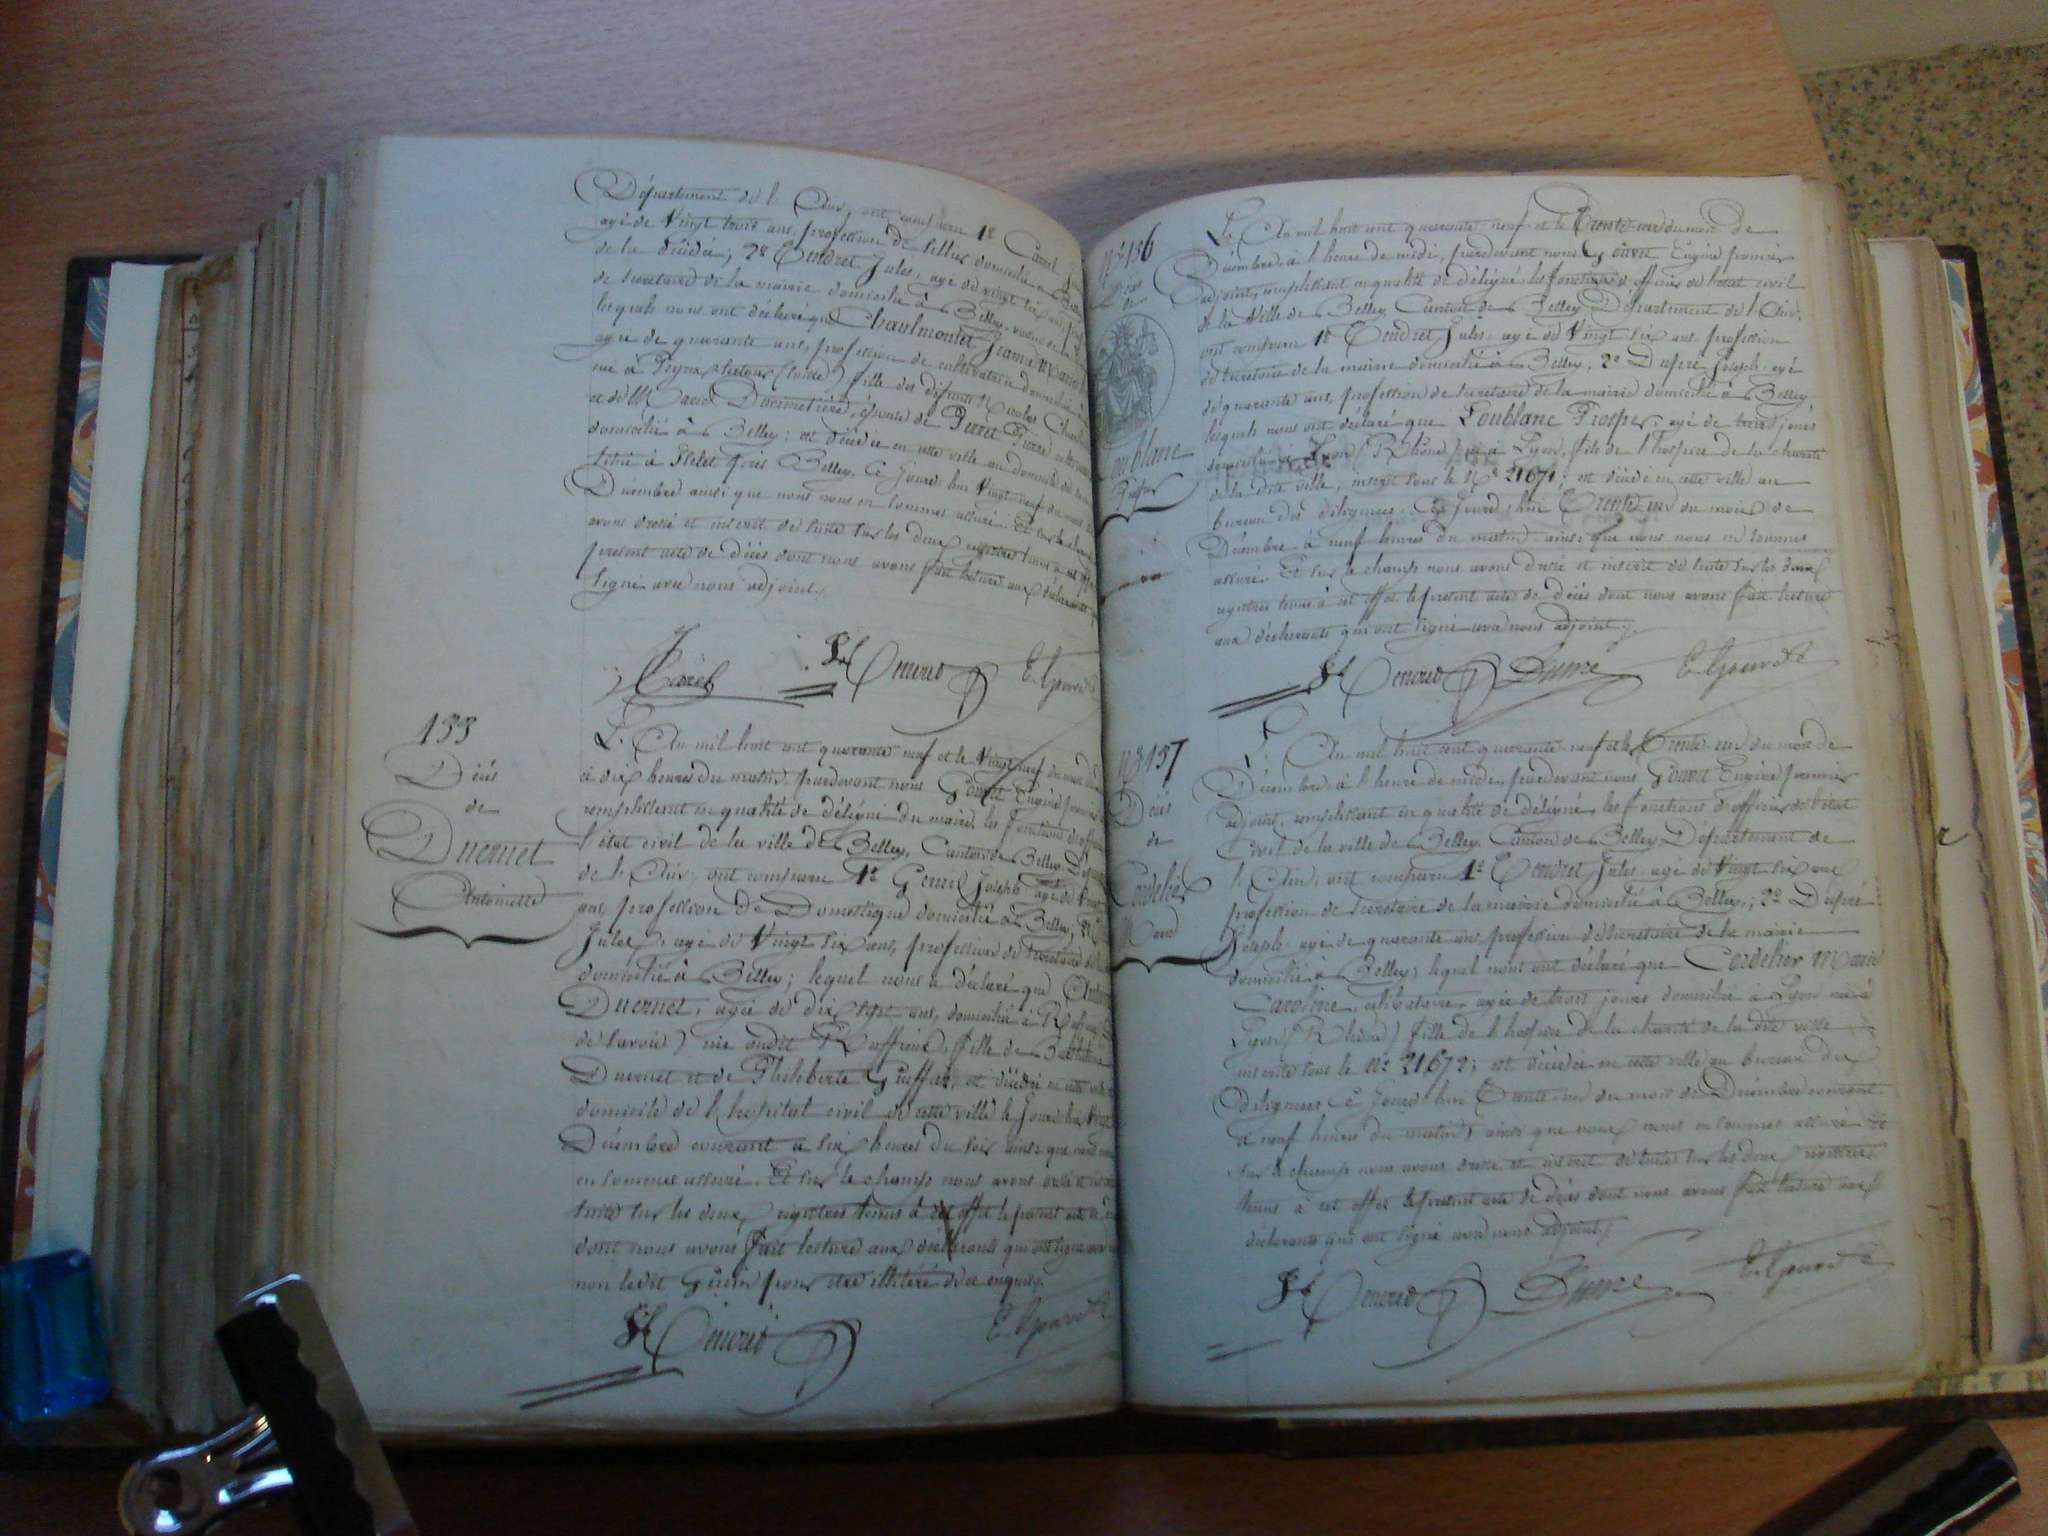 Département de l'Ain, ont comparu 1º Carrel
agé de Vingt trois ans, profession de Sellier domicilié à
de la décédée; 2º Tendret Jules, agé de vingt six ans,
de secretaire de la mairie domicilié à Belley, voisin de
lesquels nous ont déclaré que Chaulmontet Jeanne Marie
agée de quarante ans, profession de cultivatrice domiciliée à
née à Seyssel, fille des défunts Nicolas
et de Marie, épouse de Perret Pierre
domicilié à Belley; est décédée en cette ville au domicile
situé à près Belley. Ce Jourd'hui Vingt neuf du mois
Décembre ainsi que nous nous en sommes assuré. Et sur le champ
avons dressé et inscrit de suite sur les deux registres tenus à cet effet
présent acte de décès dont nous avons fait lecture aux déclarants
signé avec nous adjoint.
Carrel Jl Tendret E. Gouvet
155
Décès
de
Ducruet
Antoinette
L'An mil huit cent quarante neuf et le Vingt neuf du mois de
à dix heures du matin, pardevant nous Gouvet Eugène premier
remplissant en qualité de délégué du maire, les fonctions d'officier
l'état civil de la ville de Belley, Canton de Belley, Dépar
de l'Ain, ont comparu 1º Joseph agé de
ans, profession de Domestique domicilié à Belley, 2º
Jules, agé de Vingt six ans, profession de secretaire de la
domicilié à Belley; lequel nous a déclaré que
Ducruet, agée de dix sept ans, domiciliée à
de Savoie) née audit Ruffieux, fille de
Ducruet et de Philiberte, est décédée en cette ville
domicile de l'hopital civil de cette ville le Jourd'hui Vingt
Décembre courant à six heures du soir ainsi que nous nous
en sommes assuré. Et sur le champ nous avons dressé et inscrit
suite sur les deux registres tenus à cet effet le présent acte de
dont nous avons fait lecture aux déclarants qui ont signé avec nous
non ledit pour être illitéré de ce enquis.
Jl Tendret E. Gouvet
Nº 156
Décès
de
Loublanc
Prosper
L'An mil huit cent quarante neuf et le Trente un du mois de
Décembre, à l'heure de midi, pardevant nous Gouvet Eugène premier
adjoint, remplissant en qualité de délégué, les fonctions d'officier de l'état civil
de la Ville de Belley Canton de Belley Département de l'Ain,
ont comparu 1º Tendret Jules, agé de Vingt six ans, profession
de secretaire de la mairie domicilié à Belley, 2º Dupré Joseph, agé
de quarante ans, profession de secretaire de la mairie domicilié à Belley
lesquels nous ont déclaré que Loublanc Prosper, agé de trois jours
domicilié à Lyon (Rhône) né à Lyon, fils de l'hospice de la charité
de la dite ville, inscrit sous le Nº 21671; est décédé en cette ville au
bureau des diligences. Ce Jourd'hui Trente un du mois de
Décembre à neuf heures du matin ainsi que nous nous en sommes
assuré. Et sur le champ nous avons dressé et inscrit de suite sur les deux
registres tenus à cet effet le présent acte de décès dont nous avons fait lecture
aux déclarants qui ont signé avec nous adjoint.
Jl Tendret Dupré E. Gouvet
Nº 157
Décès
de
Cordelier
L'An mil huit cent quarante neuf et le Trente un du mois de
Décembre, à l'heure de midi, pardevant nous Gouvet Eugène premier
adjoint, remplissant en qualité de délégué, les fonctions d'officier de l'état
Civil de la ville de Belley, Canton de Belley Département de
l'Ain; ont comparu 1º Tendret Jules agé de Vingt six ans
profession de secretaire de la mairie domicilié à Belley; 2º Dupré
Joseph agé de quarante ans profession de secretaire de la mairie
domicilié à Belley; lequel nous ont déclaré que Cordelier Marie
Caroline, célibataire, agée de trois jours domiciliée à Lyon née à
Lyon (Rhône) fille de l'hospice de la charité de la dite ville
inscrite sous le Nº 21672; est décédée en cette ville au bureau des
diligences ce Jourd'hui Trente un du mois de Décembre courant
à neuf heures du matin ainsi que nous nous en sommes assuré. Et
sur le champ nous avons dressé et inscrit de suite sur les deux registres
tenus à cet effet le présent acte de décès dont nous avons fait lecture aux
déclarants qui ont signé avec nous adjoint.
Jl Tendret Dupré E. Gouvet